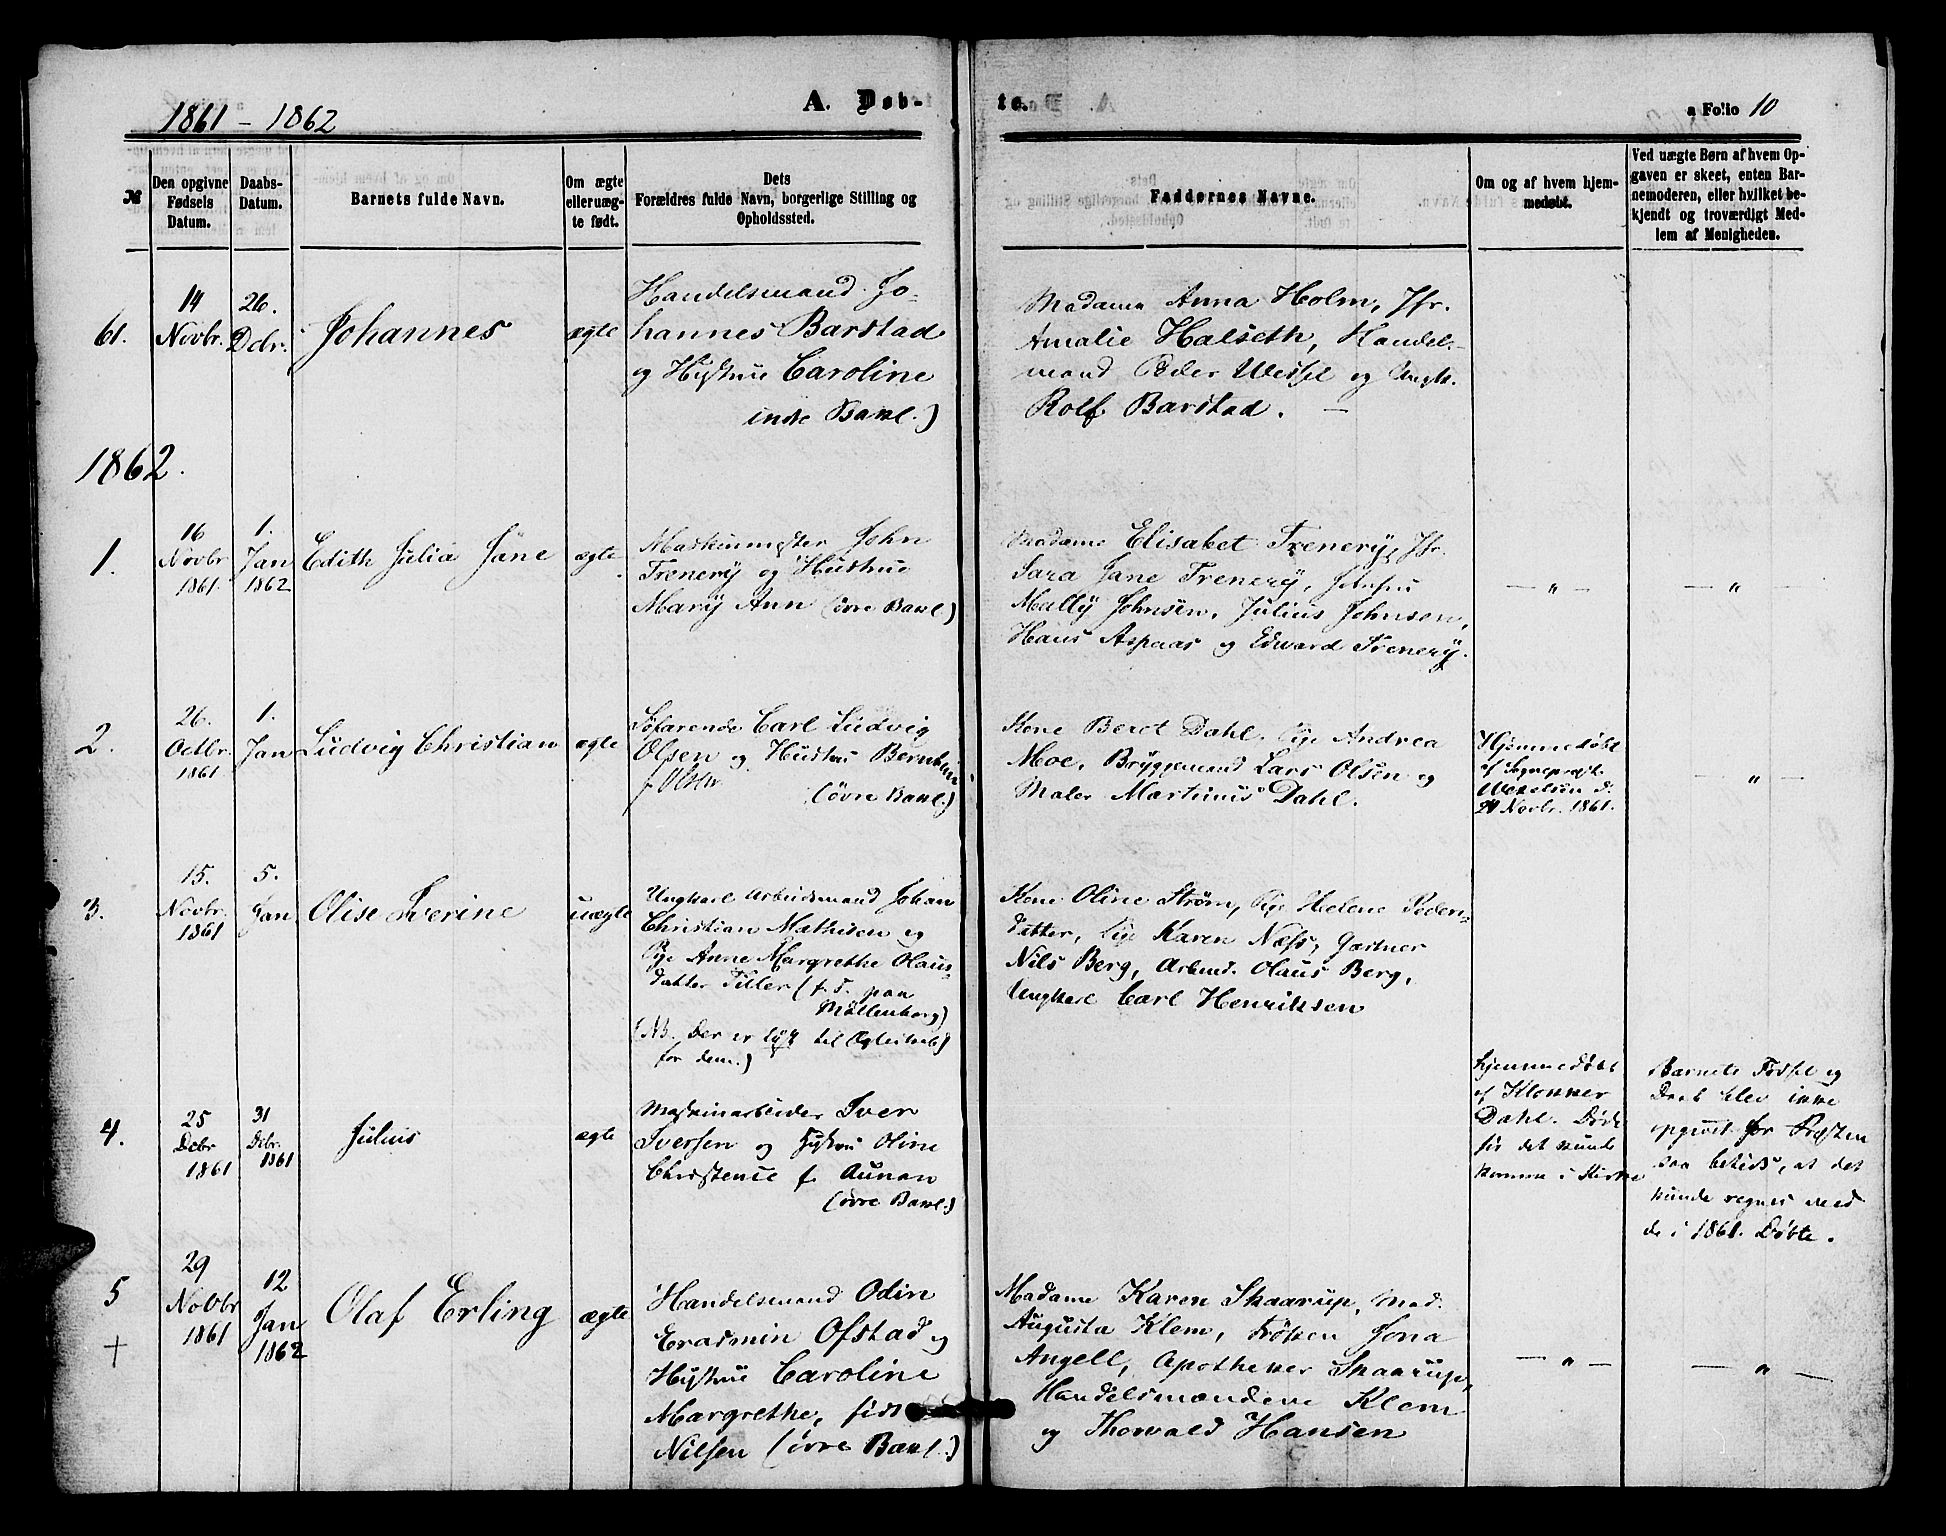 1861 - 1862
A. Døb-
te.
a Folio 10
№
Den opgivne Fødsels Datum.
Daabs-Datum.
Barnets fulde Navn.
Om ægte eller uægte født.
Dets Forældres fulde Navn, borgerlige Stilling og Opholdssted.
Faddernes Navne.
Om og af hvem hjemmedøbt.
Ved uægte Børn af hvem Opgaven er skeet, enten Barnemoderen, eller hvilket bekjendt og troværdigt Medlem af Menigheden.
61.
14 Novbr.
26. Dcbr.
Johannes
ægte
Handelsmand Jo-
hannes Barstad
og Hustrue Caroline
Bakl.)
Madame Anna Holm, Jfr.
Amalie Halseth, Handels-
mand Peder Wessel og Ungk.
Rolf Barstad. —
1862.
1.
16 Novbr 1861.
1. Jan 1862
Edith Julia Jane
ægte
Maskinmester John
Trenery og Hustrue
Mary Ann (øvre Bakl.)
Madame Elisabet Trenery, Jfr.
Sara Jane Trenery,
Mally Johnsen, Julius Johnsen,
Hans Aspaas og Edward Trenery.
— " —
— "
2.
26. Octbr. 1861
1. Jan
Ludvig Christian
ægte
Søfarende Carl Ludvig
Olsen og Hustru
f. Olsen
(øvre Bakl.)
Kone Beret Dahl. Pige Andrea
Moe, Bryggemand Lars Olsen og
Maler Martinus Dahl.
Hjemmedøbt
af Sogneprest
Wexelsen d.
24 Novbr. 1861.
— " —
3.
15. Novbr. 1861
5. Jan
Olise Sverine
uægte
Ungkarl Arbeidsmand Johan
Christian Mathisen og
Pige Anne Margrethe Olaus-
datter Tiller (f. T. paa
Møllenberg)
(NB. Der er lyst til Ægteskab
for dem.)
Kone Oline Strøm, Pige Helene Peders-
datter, Pige Karen Næss, Gartner
Nils Berg, Arbmd. Olaus Berg,
Ungkarl Carl Henriksen
4.
25 Dcbr 1861
31 Dcbr. 1861
Julius
ægte
Maskinarbeider Iver
Iversen og Hustru Oline
Christence f. Aunan
(øvre Bakl.)
Hjemmedøbt
af Klokker
Dahl. Døde
før det kunde
komme i Kirke
Barnets Fødsel og
Daab blev ikke
opgivet for Præsten
saa betids, at det
kunde regnes med
de i 1861. Døbte.
5
+
29 Novbr 1861
12 Jan 1862
Olaf Erling
ægte
Handelsmand Odin
Erasmin Ofstad og
Hustrue Caroline
Margrethe, født
Nilsen (øvre Bakl.)
Madame Karen Skaarup, Mad.
Augusta Klem, Frøken Jona
Angell, Apotheker Skaarup,
Handelsmændene Klem
og Thorvald Hansen
— " —
— " —